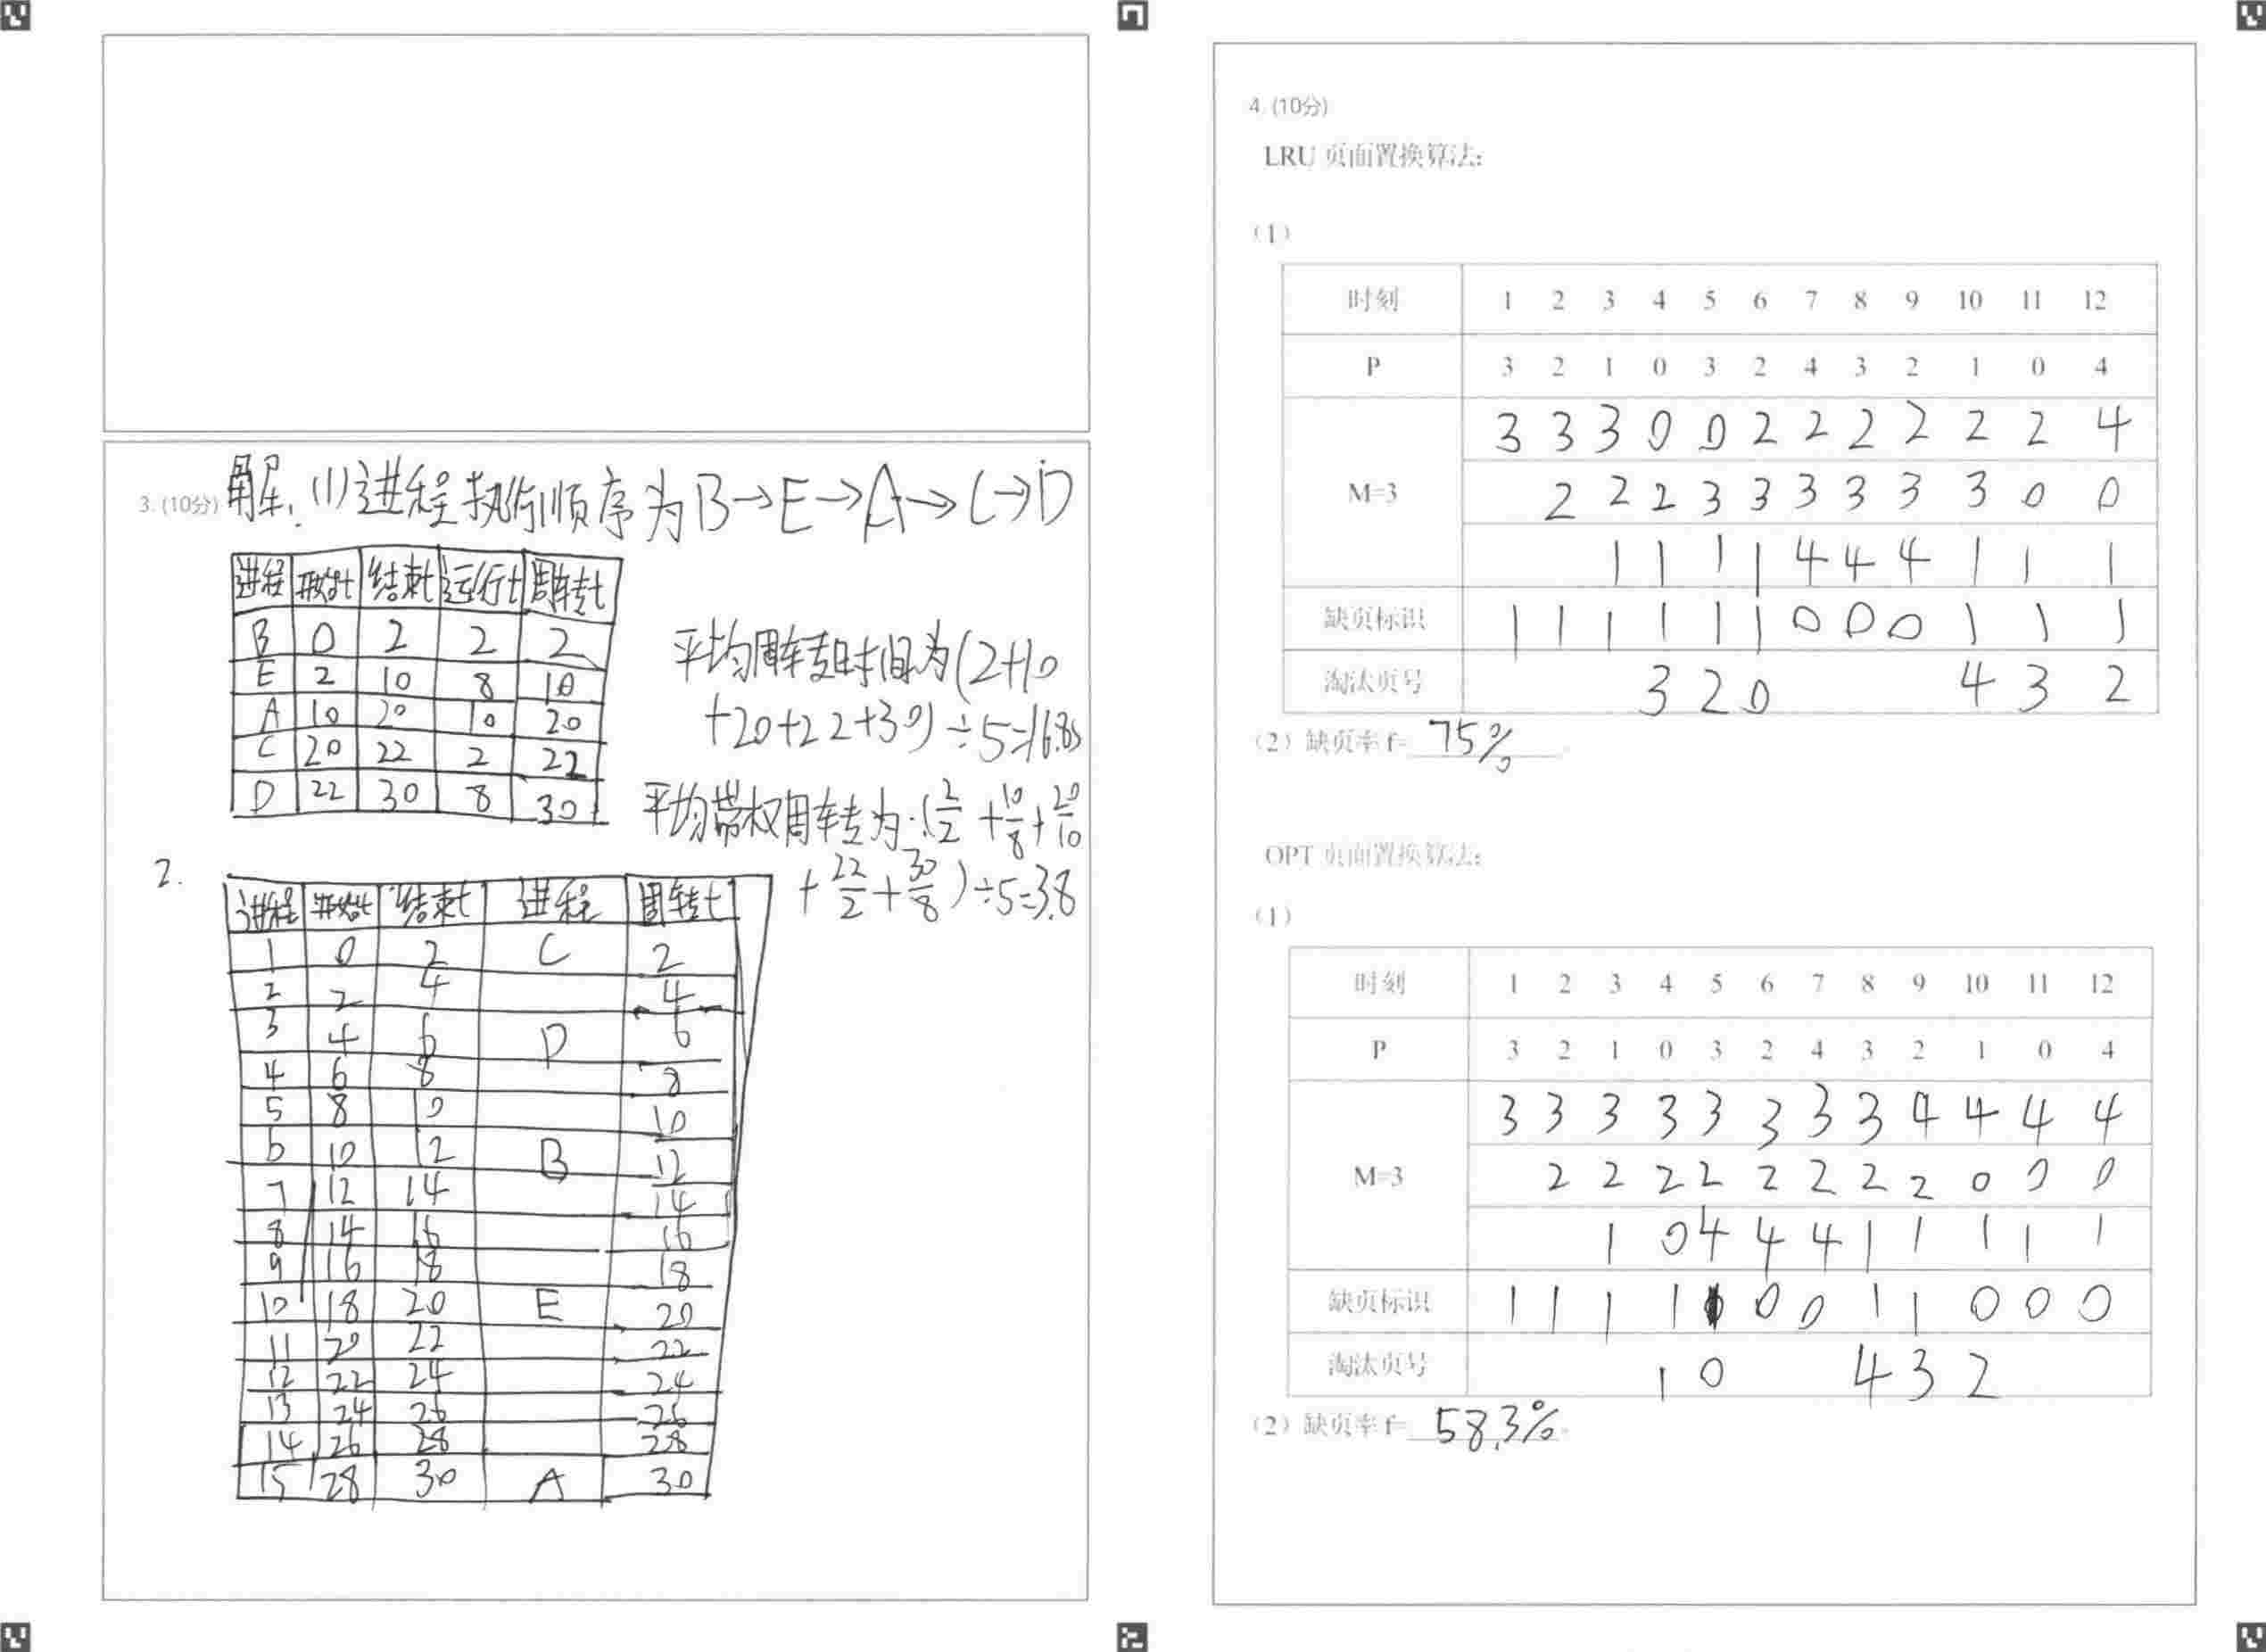 3. (10分) 解: (1)进程执行顺序为B→E→A→C→D
进程 开始t 结束t 运行t 周转t
B 0 2 2 2
E 2 10 8 10
A 10 20 10 20
C 20 22 2 22
D 22 30 8 30
平均周转时间为(2+10
+20+22+30)÷5=16.8s
平均带权周转为:(2/2+10/8+20/10
+22/2+30/8)÷5=3.8
2.
进程 开始t 结束t 进程 周转t
1 0 2 C 2
2 2 4 4
3 4 6 D 6
4 6 8 8
5 8 10 10
6 10 12 B 12
7 12 14 14
8 14 16 16
9 16 18 18
10 18 20 E 20
11 20 22 22
12 22 24 24
13 24 26 26
14 26 28 28
15 28 30 A 30
4. (10分)
LRU 页面置换算法:
(1)
时刻 1 2 3 4 5 6 7 8 9 10 11 12
P 3 2 1 0 3 2 4 3 2 1 0 4
3 3 3 0 0 2 2 2 2 2 2 4
M=3 2 2 2 3 3 3 3 3 3 0 0
1 1 1 1 4 4 4 1 1 1
缺页标识 1 1 1 1 1 1 0 0 0 1 1 1
淘汰页号 3 2 0 4 3 2
(2) 缺页率 f= 75% 。
OPT 页面置换算法:
(1)
时刻 1 2 3 4 5 6 7 8 9 10 11 12
P 3 2 1 0 3 2 4 3 2 1 0 4
3 3 3 3 3 3 3 3 4 4 4 4
M=3 2 2 2 2 2 2 2 2 0 0 0
1 0 4 4 4 1 1 1 1 1
缺页标识 1 1 1 1 0 0 1 1 0 0 0
淘汰页号 1 0 4 3 2
(2) 缺页率 f= 58.3% 。